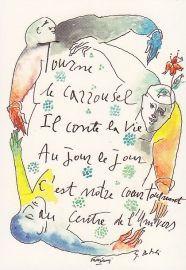 Tourne
le Carrousel
Il conte la Vie
Au Jour le Jour
C'est notre coeur
au Centre de l'Univers